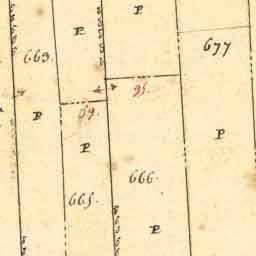 P
P
677
663.
95.
59.
P
P
P
666.
665.
P